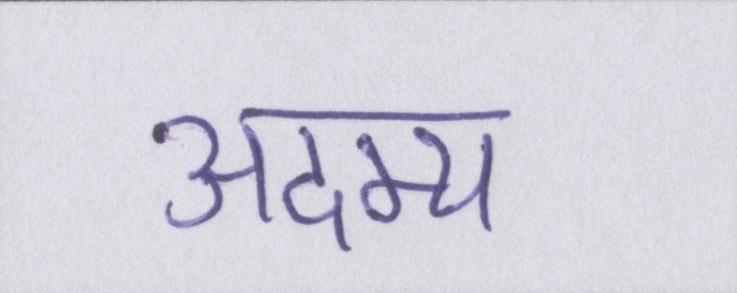 अदम्य